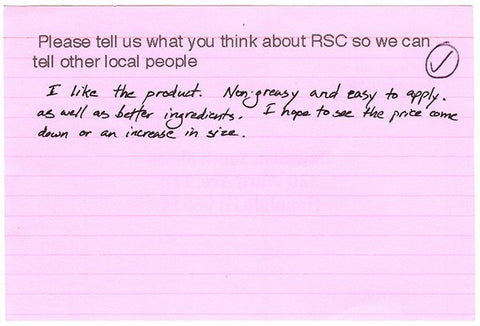 Please tell us what you think about RSC so we can
tell other local people
I like the product. Non-greasy and easy to apply.
as well as better ingredients. I hope to see the price come
down or an increase in size.